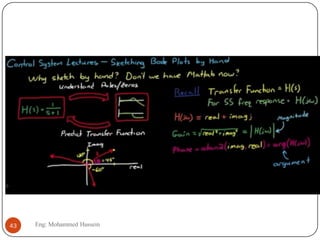 Control System Lectures - Sketching Bode Plots by Hand
Why sketch by hand? Don't we have Matlab now?
Understand Poles/Zeros
H(s) = 1/(s+1)
Predict Transfer Function
Imag
real
+45°
-60°
Recall Transfer Function = H(s)
For SS freq response = H(jω)
H(jω) = real + imag j
magnitude
Gain = √(real² + imag²) = |H(jω)|
Phase = atan2(imag, real) = arg(H(jω))
argument
43
Eng: Mohammed Hussein